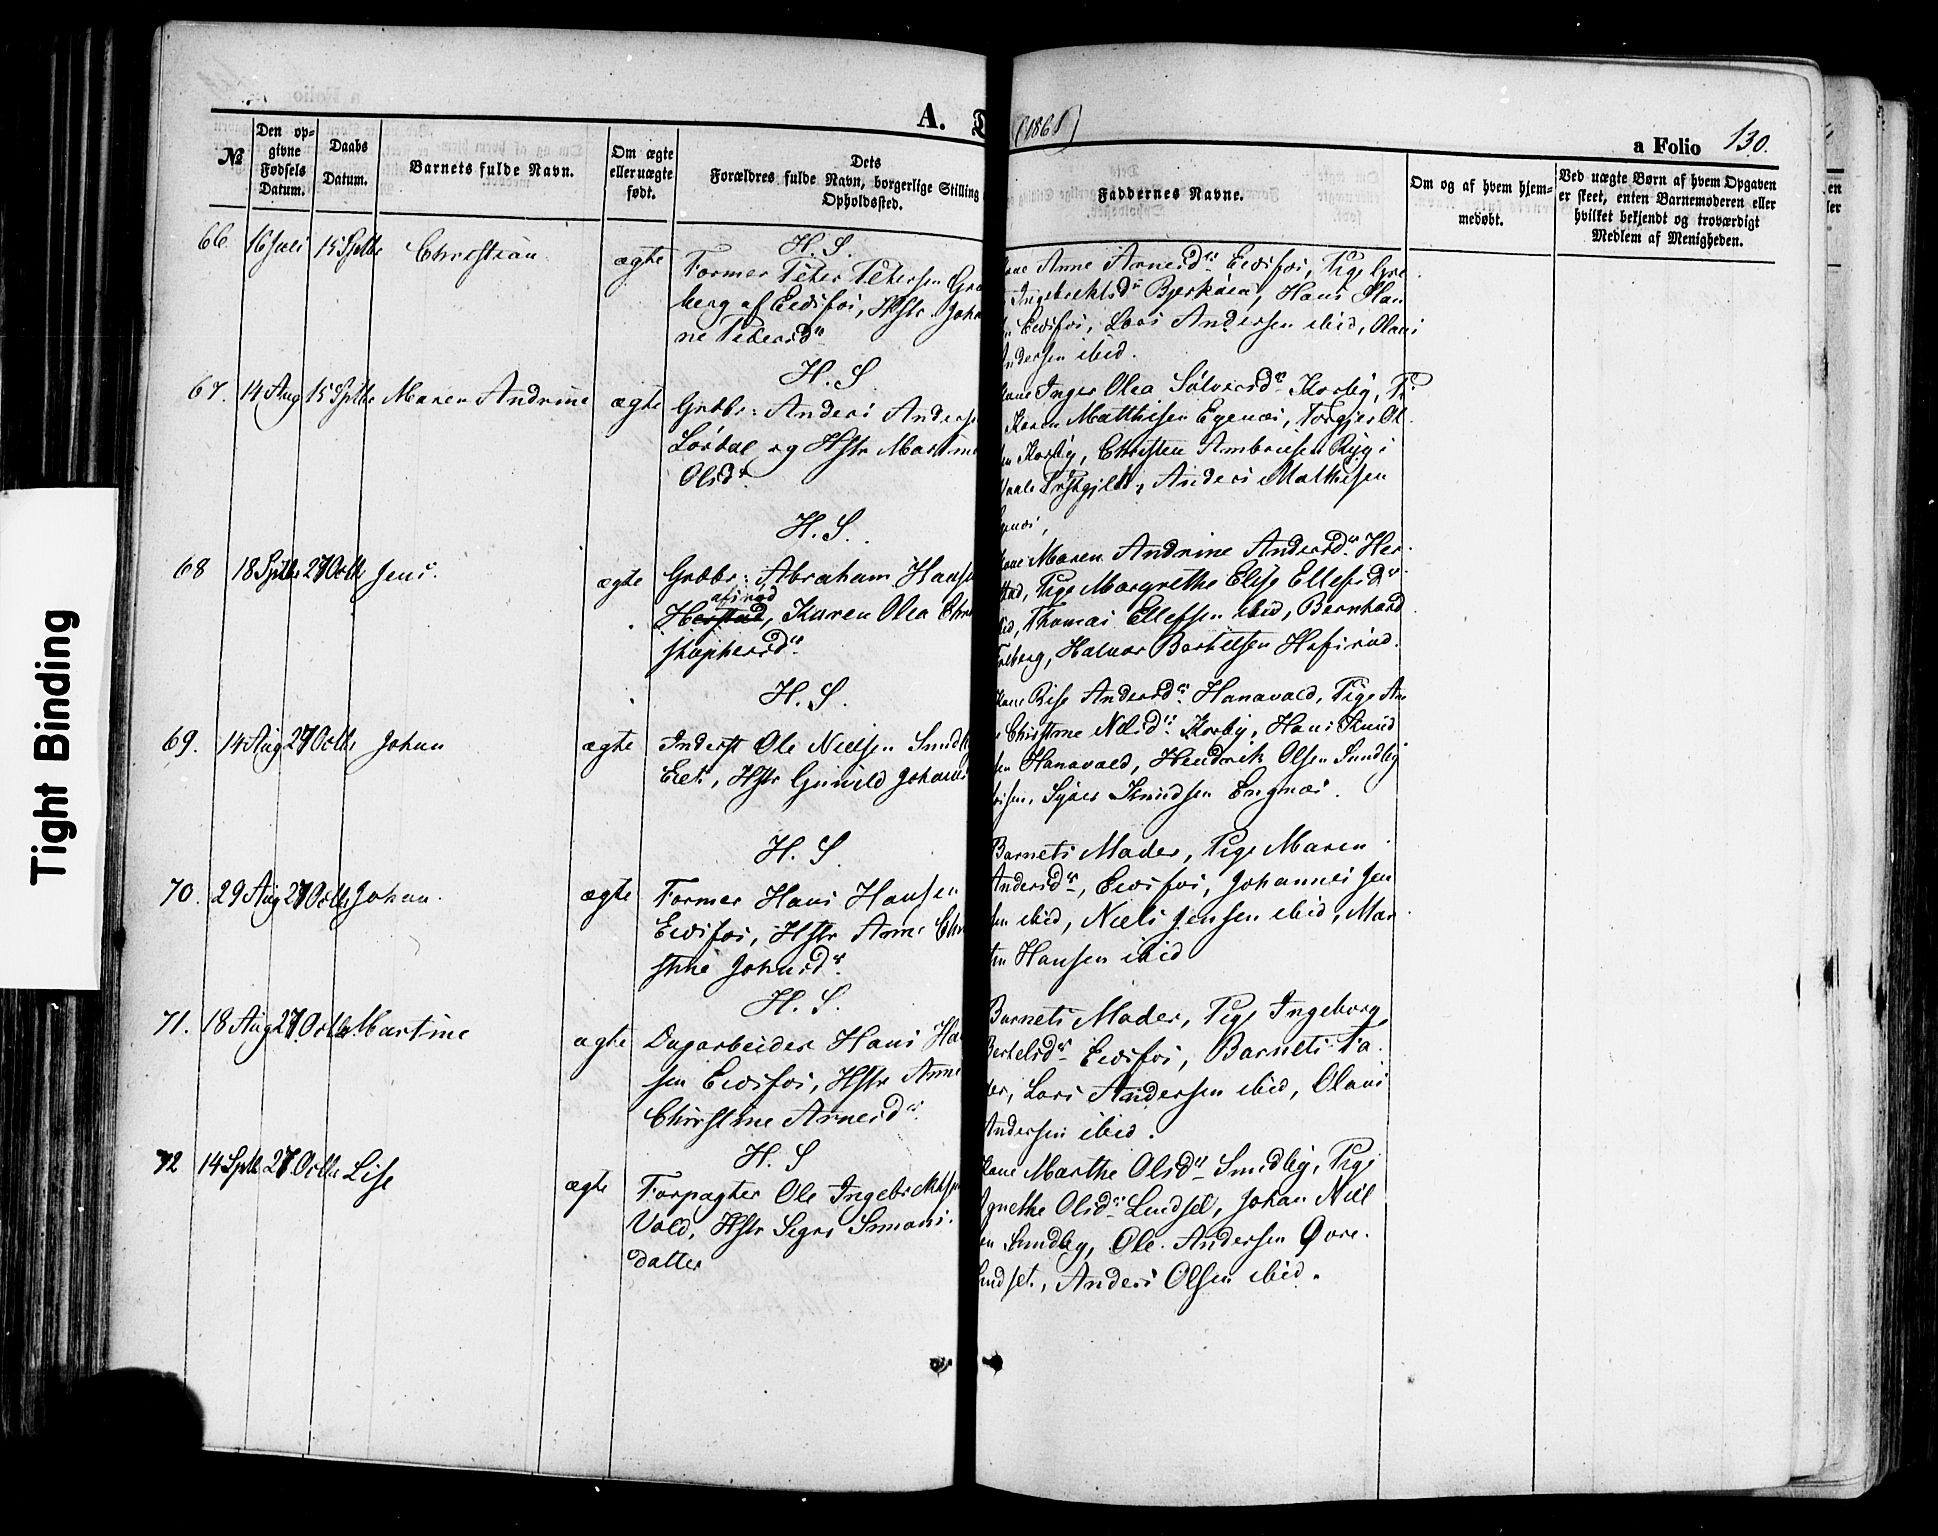 Tight Binding
A. D
(1868)
a Folio 130.
№
Den op-
givne
Fødsels
Datum.
Daabs
Datum.
Barnets fulde Navn.
Om ægte
eller uægte
født.
Dets
Forældres fulde Navn, borgerlige Stilling
Opholdssted.
Faddernes Navne.
Om og af hvem hjem-
medøbt.
Ved uægte Børn af hvem Opgaven
er skeet, enten Barnemoderen eller
hvilket bekjendt og troværdigt
Medlem af Menigheden.
66. 16 Juli 15 Septbr Christian ægte
H. S.
Former Peter Petersen Gra
berg af Eidsfos, Hstr. Joha
ne Pedersd.
Kone Anne Arnesd. Eidsfos, Pige
Ingebrektsd. Bjerkåsen, Hans
Eidsfos, Lars Andersen ibid, Olaus
Andersen ibid.
67. 14 Aug 15 Septbr Maren Andrine ægte
H. S.
Grdbr: Anders Anderse
og Hstr Martine
Olsd.
Kone Inger Olea Korby, Pi
Karen Mathisen Egenæs, Torgjer Ol
Korby, Christen Ambrosen Ryg i
Vaale Prstgjeld, Anders Mathisen
68 18 Septbr 27 Octbr Jens. ægte
H. S.
Grdbr: Abraham Hanse
Herstad, Karen Olea Chri
stophersd.
Kone Maren Andrine Andersd. Her
stad, Pige Margrethe Elise Ellefsd.
ibid, Thomas Ellefsen ibid, Bernhard
berg, Halvor Bertelsen Hafsrød.
69. 14 Aug 27 Octbr Johan ægte
H. S.
Inderst Ole Nielsen Sundby
Eiet, Hstr Gunild Johanes
Kone Lise Andersd. Hanavald, Pige An
Christine Nilsd. Korby, Hans Knud
sen Hanavald, Hendrik Olsen Sundby
Syver Knudsen Engnæs.
70. 29 Aug 27 Octbr Johan. ægte
H. S.
Former Hans Hansen
Eidsfos, Hstr Anne Chri
stine Johnsd.
Barnets Moder, Pige Maren
Andersd., Eidsfos, Johannes Jen
sen ibid, Niels Jensen ibid, Mar
tin Hansen ibid
71. 18 Aug 27 Octbr Martine ægte
H. S.
Dagarbeider Hans Ha
sen Eidsfos, Hstr Anne
Christine Arnesd.
Barnets Moder, Pige Ingeborg
Bertelsd. Eidsfos, Barnets Fa
der, Lars Andersen ibid, Olaus
Andersen ibid.
72 14 Septbr 27 Octbr Lise ægte
H. S
Forpagter Ole Ingebrektsen
Vold, Hstr Segri Simons
datter
Kone Marthe Olsd. Sundby, Pige
Agnethe Olsd. Lindset, Johan Niel
sen Sundby, Ole Andersen Øvre
Lindset, Anders Olsen ibid.